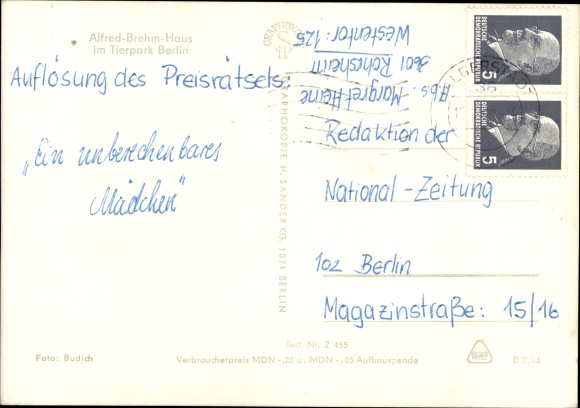 Alfred-Brehm-Haus
im Tierpark Berlin
Auflösung des Preisrätsels:
„Ein unberechenbares
Mädchen"
Abs.: Margret Heine
3601 Rohrsheim
Westentor: 125
Redaktion der
National-Zeitung
102 Berlin
Magazinstraße: 15/16
DEUTSCHE
DEMOKRATISCHE REPUBLIK
5
DEUTSCHE
DEMOKRATISCHE REPUBLIK
5
GRAPHOKOPIE H. SANDER KG, 1071 BERLIN
Best.-Nr. Z 455
Verbraucherpreis MDN -,25 u. MDN -,05 Aufbauspende
Foto: Budich